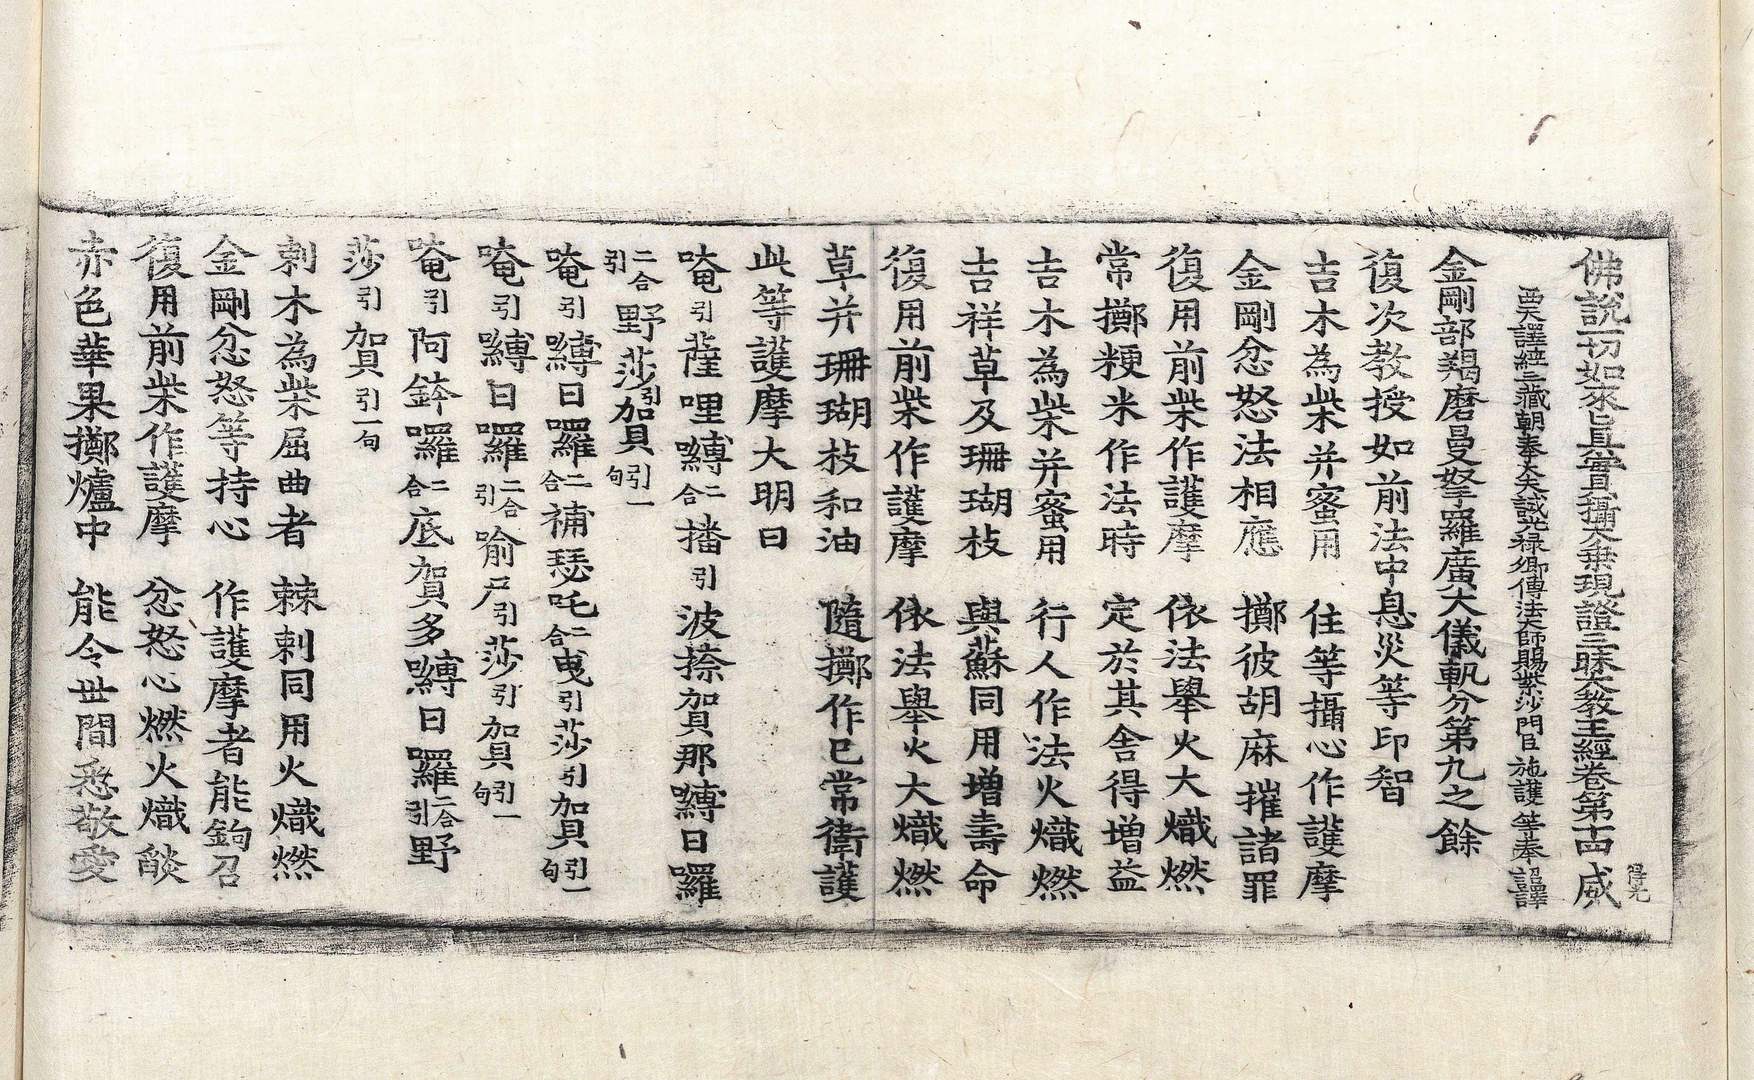 佛說一切如來真實攝大乘現證三昧大教王經卷第十四 威
西天譯經三藏朝奉大夫試光祿卿傳法大師賜紫沙門臣施護等奉 詔譯
金剛部羯磨曼拏羅廣大儀軌分第九之餘
復次教授如前法中息災等印智
吉木為柴并蜜用 住等攝心作護摩
金剛忿怒法相應 擲彼胡麻摧諸罪
復用前柴作護摩 依法舉火大熾燃
常擲粳米作法時 定於其舍得增益
吉木為柴并蜜用 行人作法火熾燃
吉祥草及珊瑚枝 與蘇同用增壽命
復用前柴作護摩 依法舉火大熾燃
草并珊瑚枝和油 隨擲作已常衛護
此等護摩大明曰
唵引薩哩嚩二合播引波捺賀那嚩日囉
二合引野莎引賀引一句
唵引嚩日囉二合補瑟吒二合曳引莎引賀引一句
唵引嚩日囉二合引喻尸引莎引賀引一句
唵引阿鉢囉二合底賀多嚩日囉二合引野
莎引賀引一句
刺木為柴屈曲者 棘刺同用火熾燃
金剛忿怒等持心 作護摩者能鉤召
復用前柴作護摩 忿怒心燃火熾燄
赤色華果擲爐中 能令世間悉敬愛